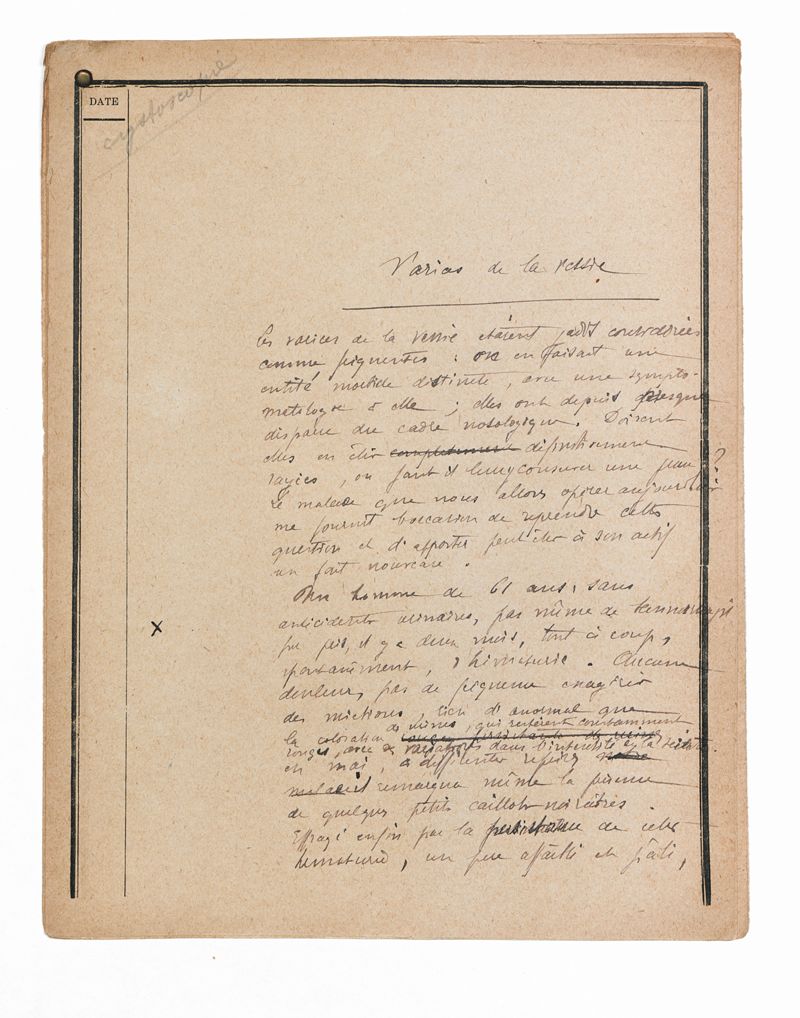 DATE
cystoscopie
Varices de la vessie
Les varices de la vessie étaient jadis considérées
comme fréquentes : on en faisait une
entité morbide distincte, avec une sympto-
matologie à elle ; elles ont depuis presque
disparu du cadre nosologique. Doivent
elles en être complètement définitivement
rayées, ou faut il leur conserver une place ?
Le malade que nous allons opérer aujourd'hui
me fournit l'occasion de reprendre cette
question et d'apporter peut être à son actif
un fait nouveau.
Un homme de 61 ans, sans
antécédents urinaires, pas même de
fut pris, il y a deux mois, tout à coup,
spontanément, d'hématurie. Aucune
douleur, pas de fréquence exagérée
des mictions, rien d'anormal que
la coloration des urines, qui restèrent constamment
rouges, avec des variations dans l'intensité de la teinte
et mais, à différentes reprises notre
malade il remarqua même la présence
de quelques petits caillots noirâtres.
Effrayé enfin par la persistance de cette
hématurie, un peu affaibli et pâli,
X